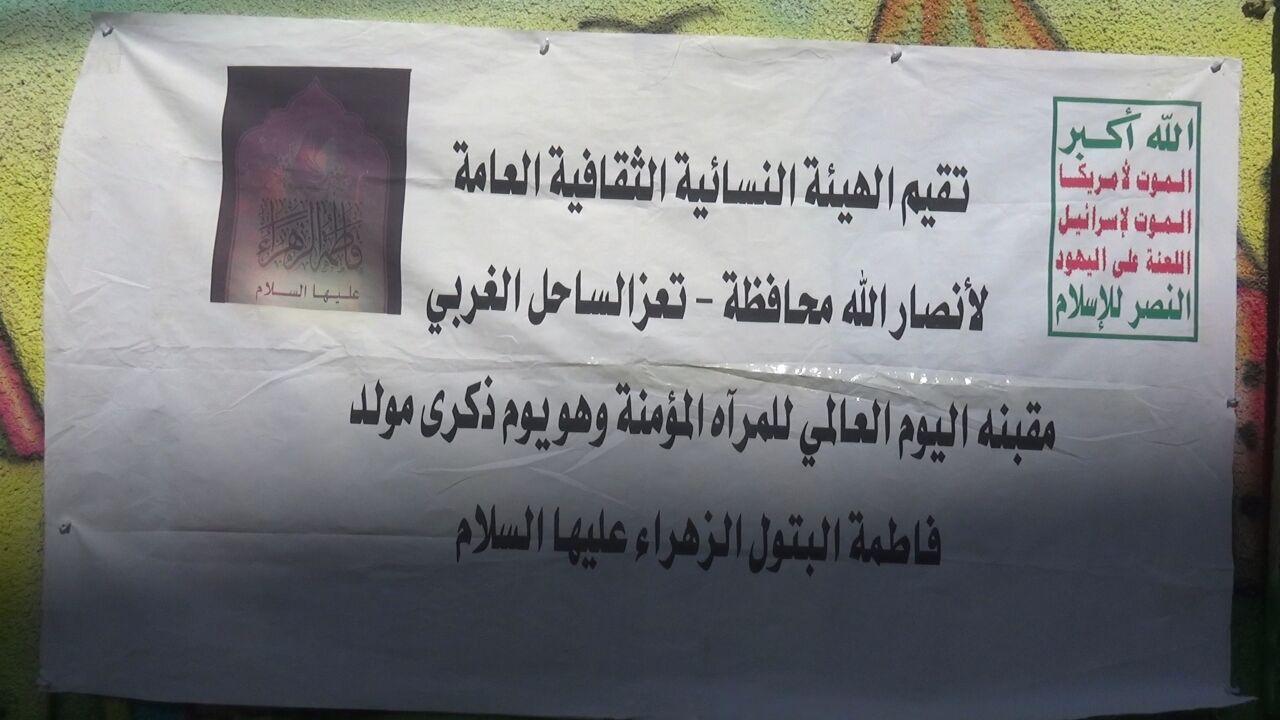 الله أكبر
الموت لأمريكا
الموت لإسرائيل
اللعنة على اليهود
النصر للإسلام
تقيم الهيئة النسائية الثقافية العامة
لأنصار الله محافظة - تعز الساحل الغربي
مقبنه اليوم العالمي للمرآه المؤمنة وهو يوم ذكرى مولد
فاطمة البتول الزهراء عليها السلام
فاطمة الزهراء
عليها السلام